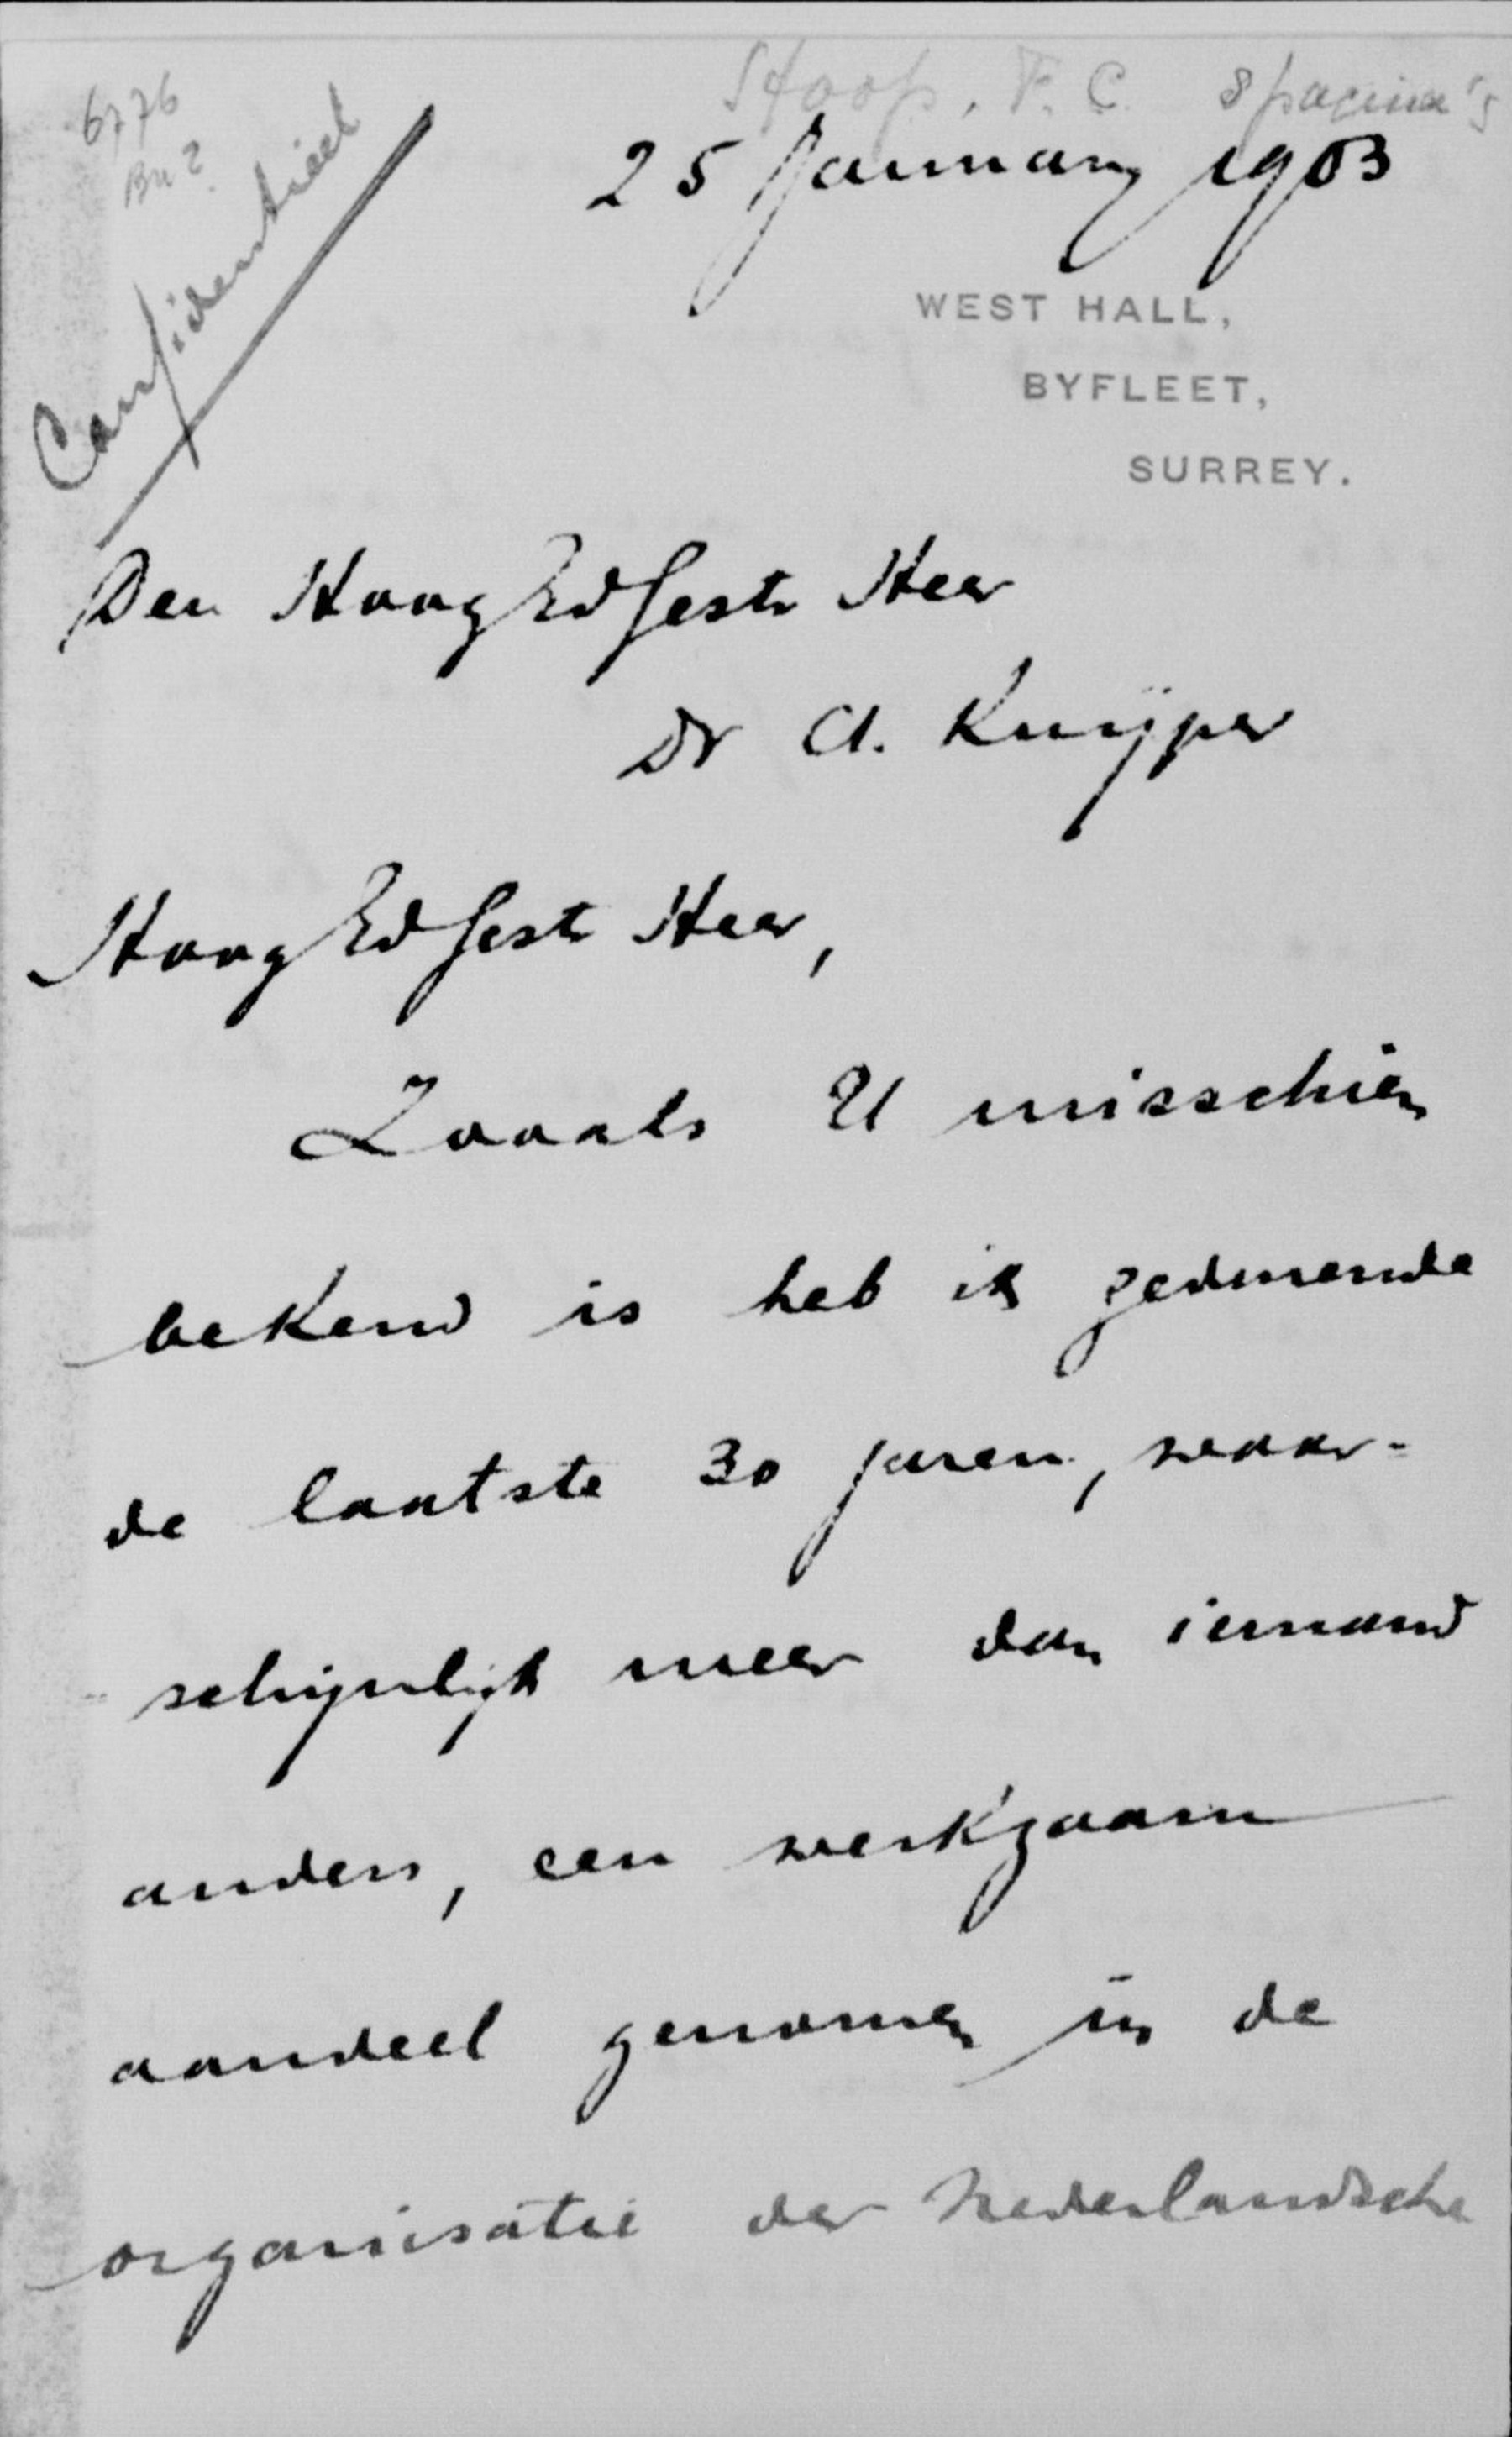 Stoop, F.C. 8 pagina's
6776
Br 2
Confidentieel
25 January 1903
WEST HALL,
BYFLEET,
SURREY.
Den HoogEdGestr Heer
Dr A. Kuÿper
HoogEdGestr Heer,
Zooals U misschien
bekend is heb ik gedurende
de laatste 30 jaren, waar-
schijnlijk meer dan iemand
anders, een werkzaam
aandeel genomen in de
organisatie der Nederlandsche